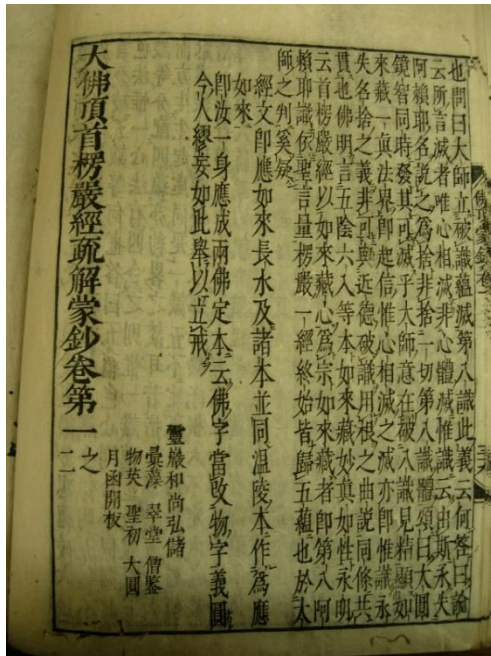 也問曰大師立破識蘊滅第八識此義云何答曰論
云所言滅者唯心相滅非心體滅惟識云由斯永失
阿賴耶名說之爲捨非捨一切第八識體頌曰大圓
鏡智同時發其可滅乎大師意在破八識見精顯如
來藏一眞法界卽起信惟心相滅之滅亦卽惟識永
失名捨之義非可與近德破識用根之曲說同條共
貫也佛明言五陰六入等本如來藏妙眞如性永明
云首楞嚴經以如來藏心爲宗如來藏者卽第八阿
賴耶識依聖言量楞嚴一經終始皆歸五蘊也於太
師之判奚疑
經文卽應如來長水及諸本並同溫陵本作爲應
如來
卽汝一身應成兩佛定本云佛字當改物字義圓
今人繆妄如此舉以立戒
靈巖和尚弘儲
彙藻 翠堂 僧鑒
物英 聖初 大圓
月函開板
大佛頂首楞嚴經疏解蒙鈔卷第一之二